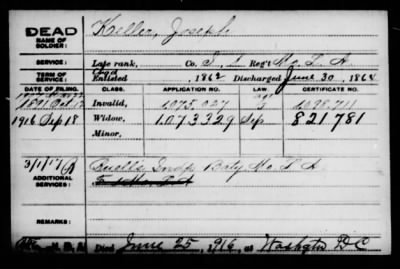 DEAD Keller, Joseph
NAME OF SOLDIER:
SERVICE: Late rank, Co. I, 1 Reg't Mo. L. A.
TERM OF SERVICE: Enlisted 1862 Discharged June 30, 1864
DATE OF FILING. CLASS. APPLICATION NO. LAW. CERTIFICATE NO.
1891 Oct 12 Invalid, 1,075,027 1,098,711
1916 Sep 18 Widow, 1,073,329 Sep 821,781
Minor,
3/1/17
ADDITIONAL SERVICES: Buell's Indp Baty Mo. L. A.
REMARKS:
Died June 25, 1916, at Washgtn D.C.